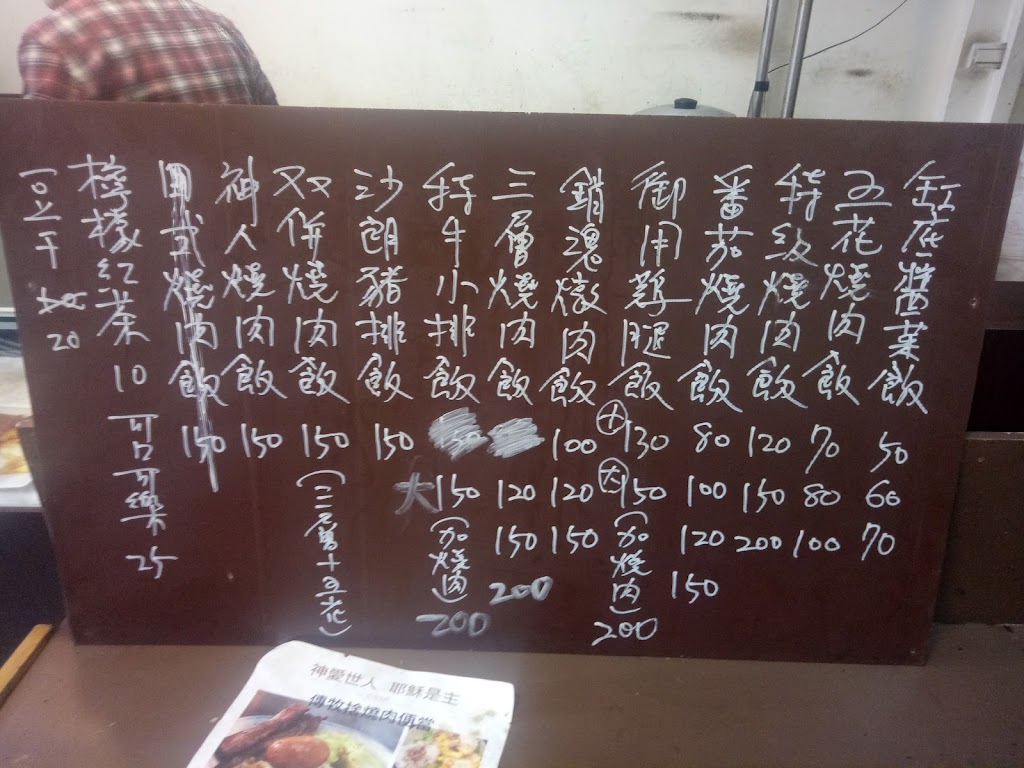 缸底菜飯 50 60 70
五花燒肉飯 70 80 100
特級燒肉飯 120 150 200
番茄燒肉飯 80 100 120 150
御用雞腿飯 130 大150 (加燒肉) 200
銷魂燉肉飯 100 120 150
三層燒肉飯 120 150 200
特牛小排飯 大150 (加燒肉) 200
沙朗豬排飯 150
双併燒肉飯 150 (三層+五花)
神人燒肉飯 150
式燒肉飯 150
檸檬紅茶 10 可口可樂 25
豆干 20
神愛世人 耶穌是主
傳牧師燒肉便當